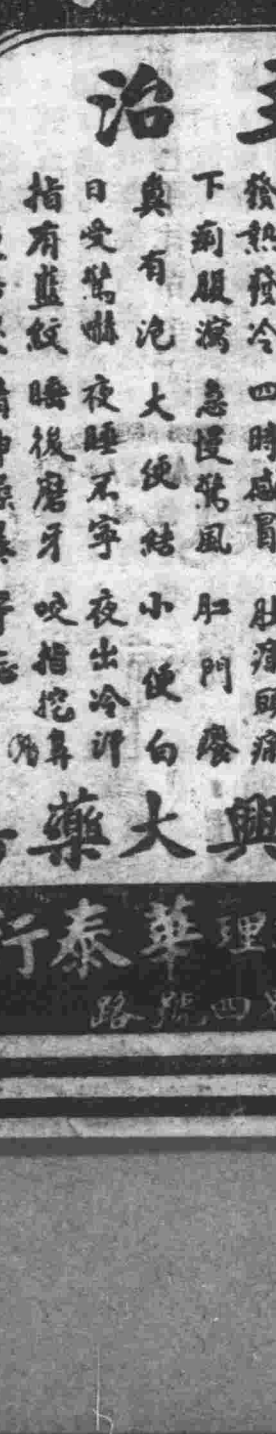 主治
發熱發冷 四時感冒 肚痛頭痛
下痢腹瀉 急慢驚風 肛門癢
糞有泡 大便結 小便白
日受驚嚇 夜睡不寧 夜出冷汗
指有藍紋 睡後磨牙 咬指挖鼻
興大藥
理華泰行
四號路